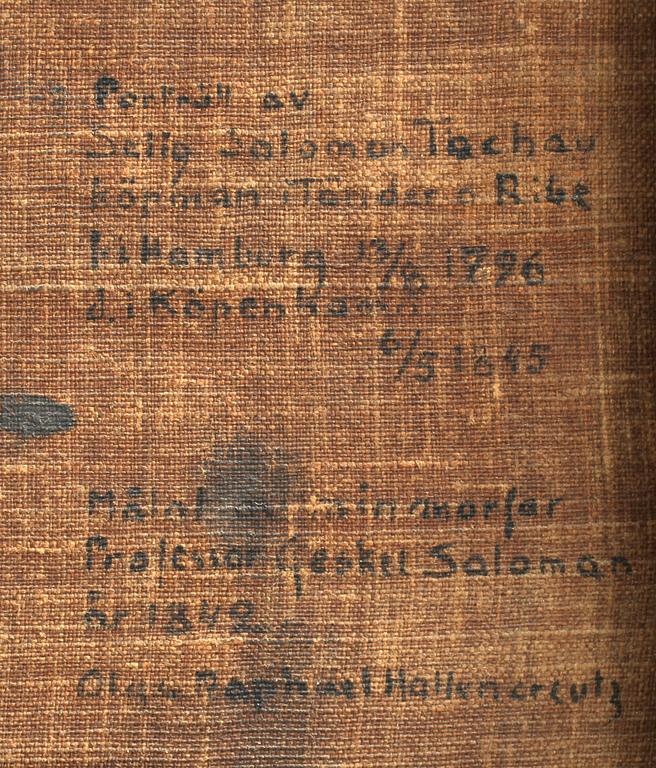 Porträtt av
Selig Salomon Tachau
köpman i Tønder o Ribe
f. i Hamburg 13/8 1796
d. i Köpenhamn
6/5 1845
Målat av min morfar
Professor Geskel Saloman
år 1842
Olga Raphael Hallencreutz